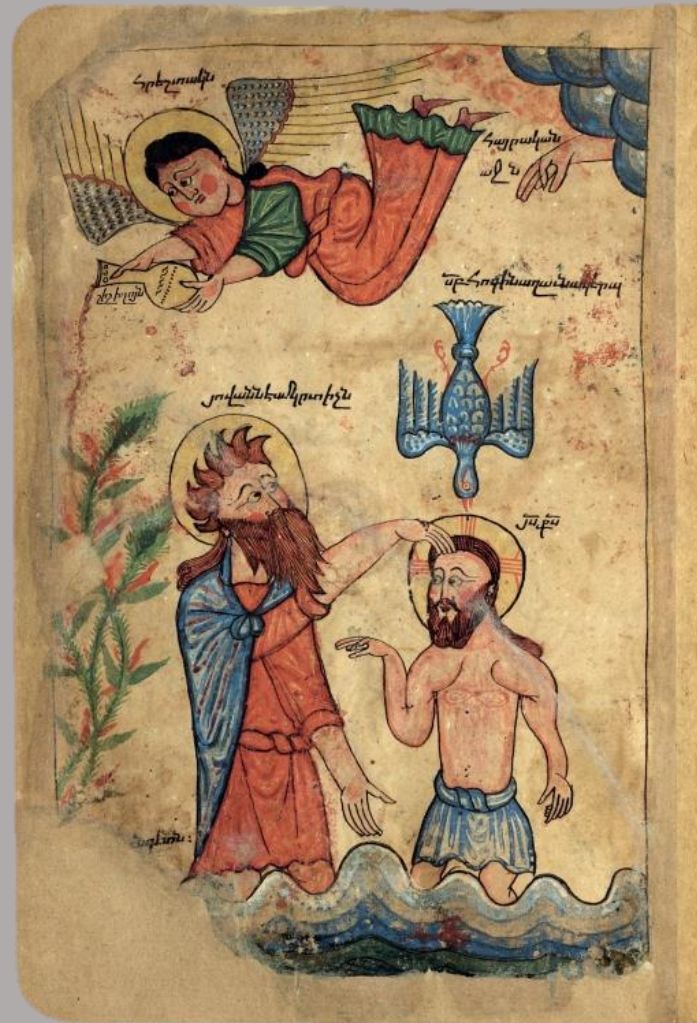 Հրեշտակն
Հայրական
աջն
սբ Հոգին աղաւնակերպ
յովաննէս մկրտիչն
յս քս